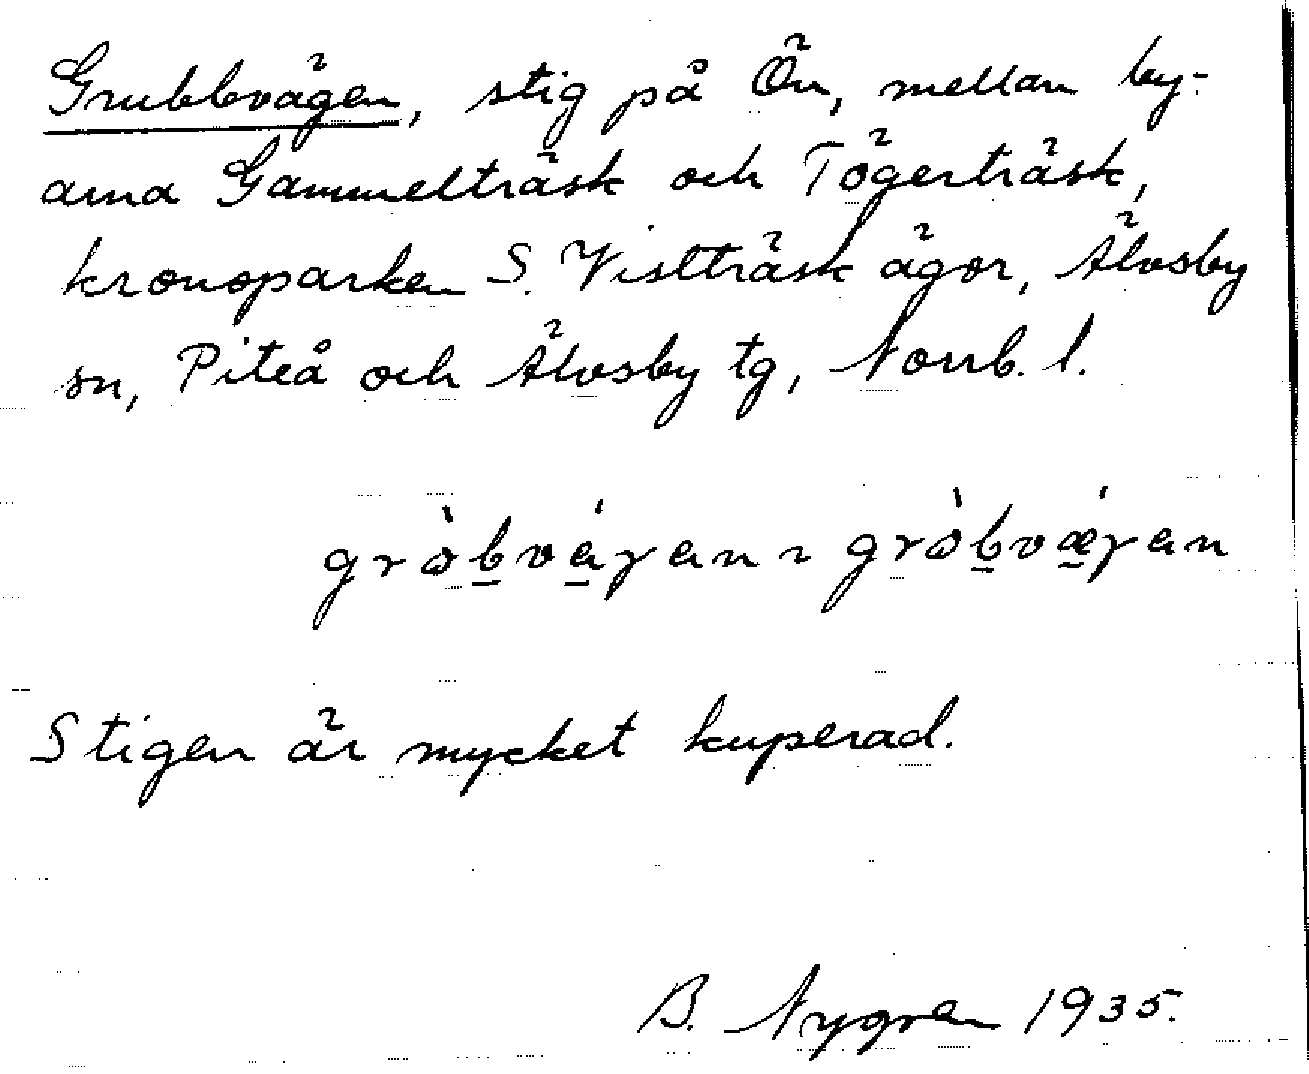 Grubbvägen, stig på Ön, mellan by-
arna Gammelträsk och Tögerträsk,
kronoparken S. Vistträsk ägor, Älvsby
sn, Piteå och Älvsby tg, Norrb. l.
gròb̲vá̲γen ~ gròb̲vǽ̲γen
Stigen är mycket kuperad.
B. Nygren 1935.